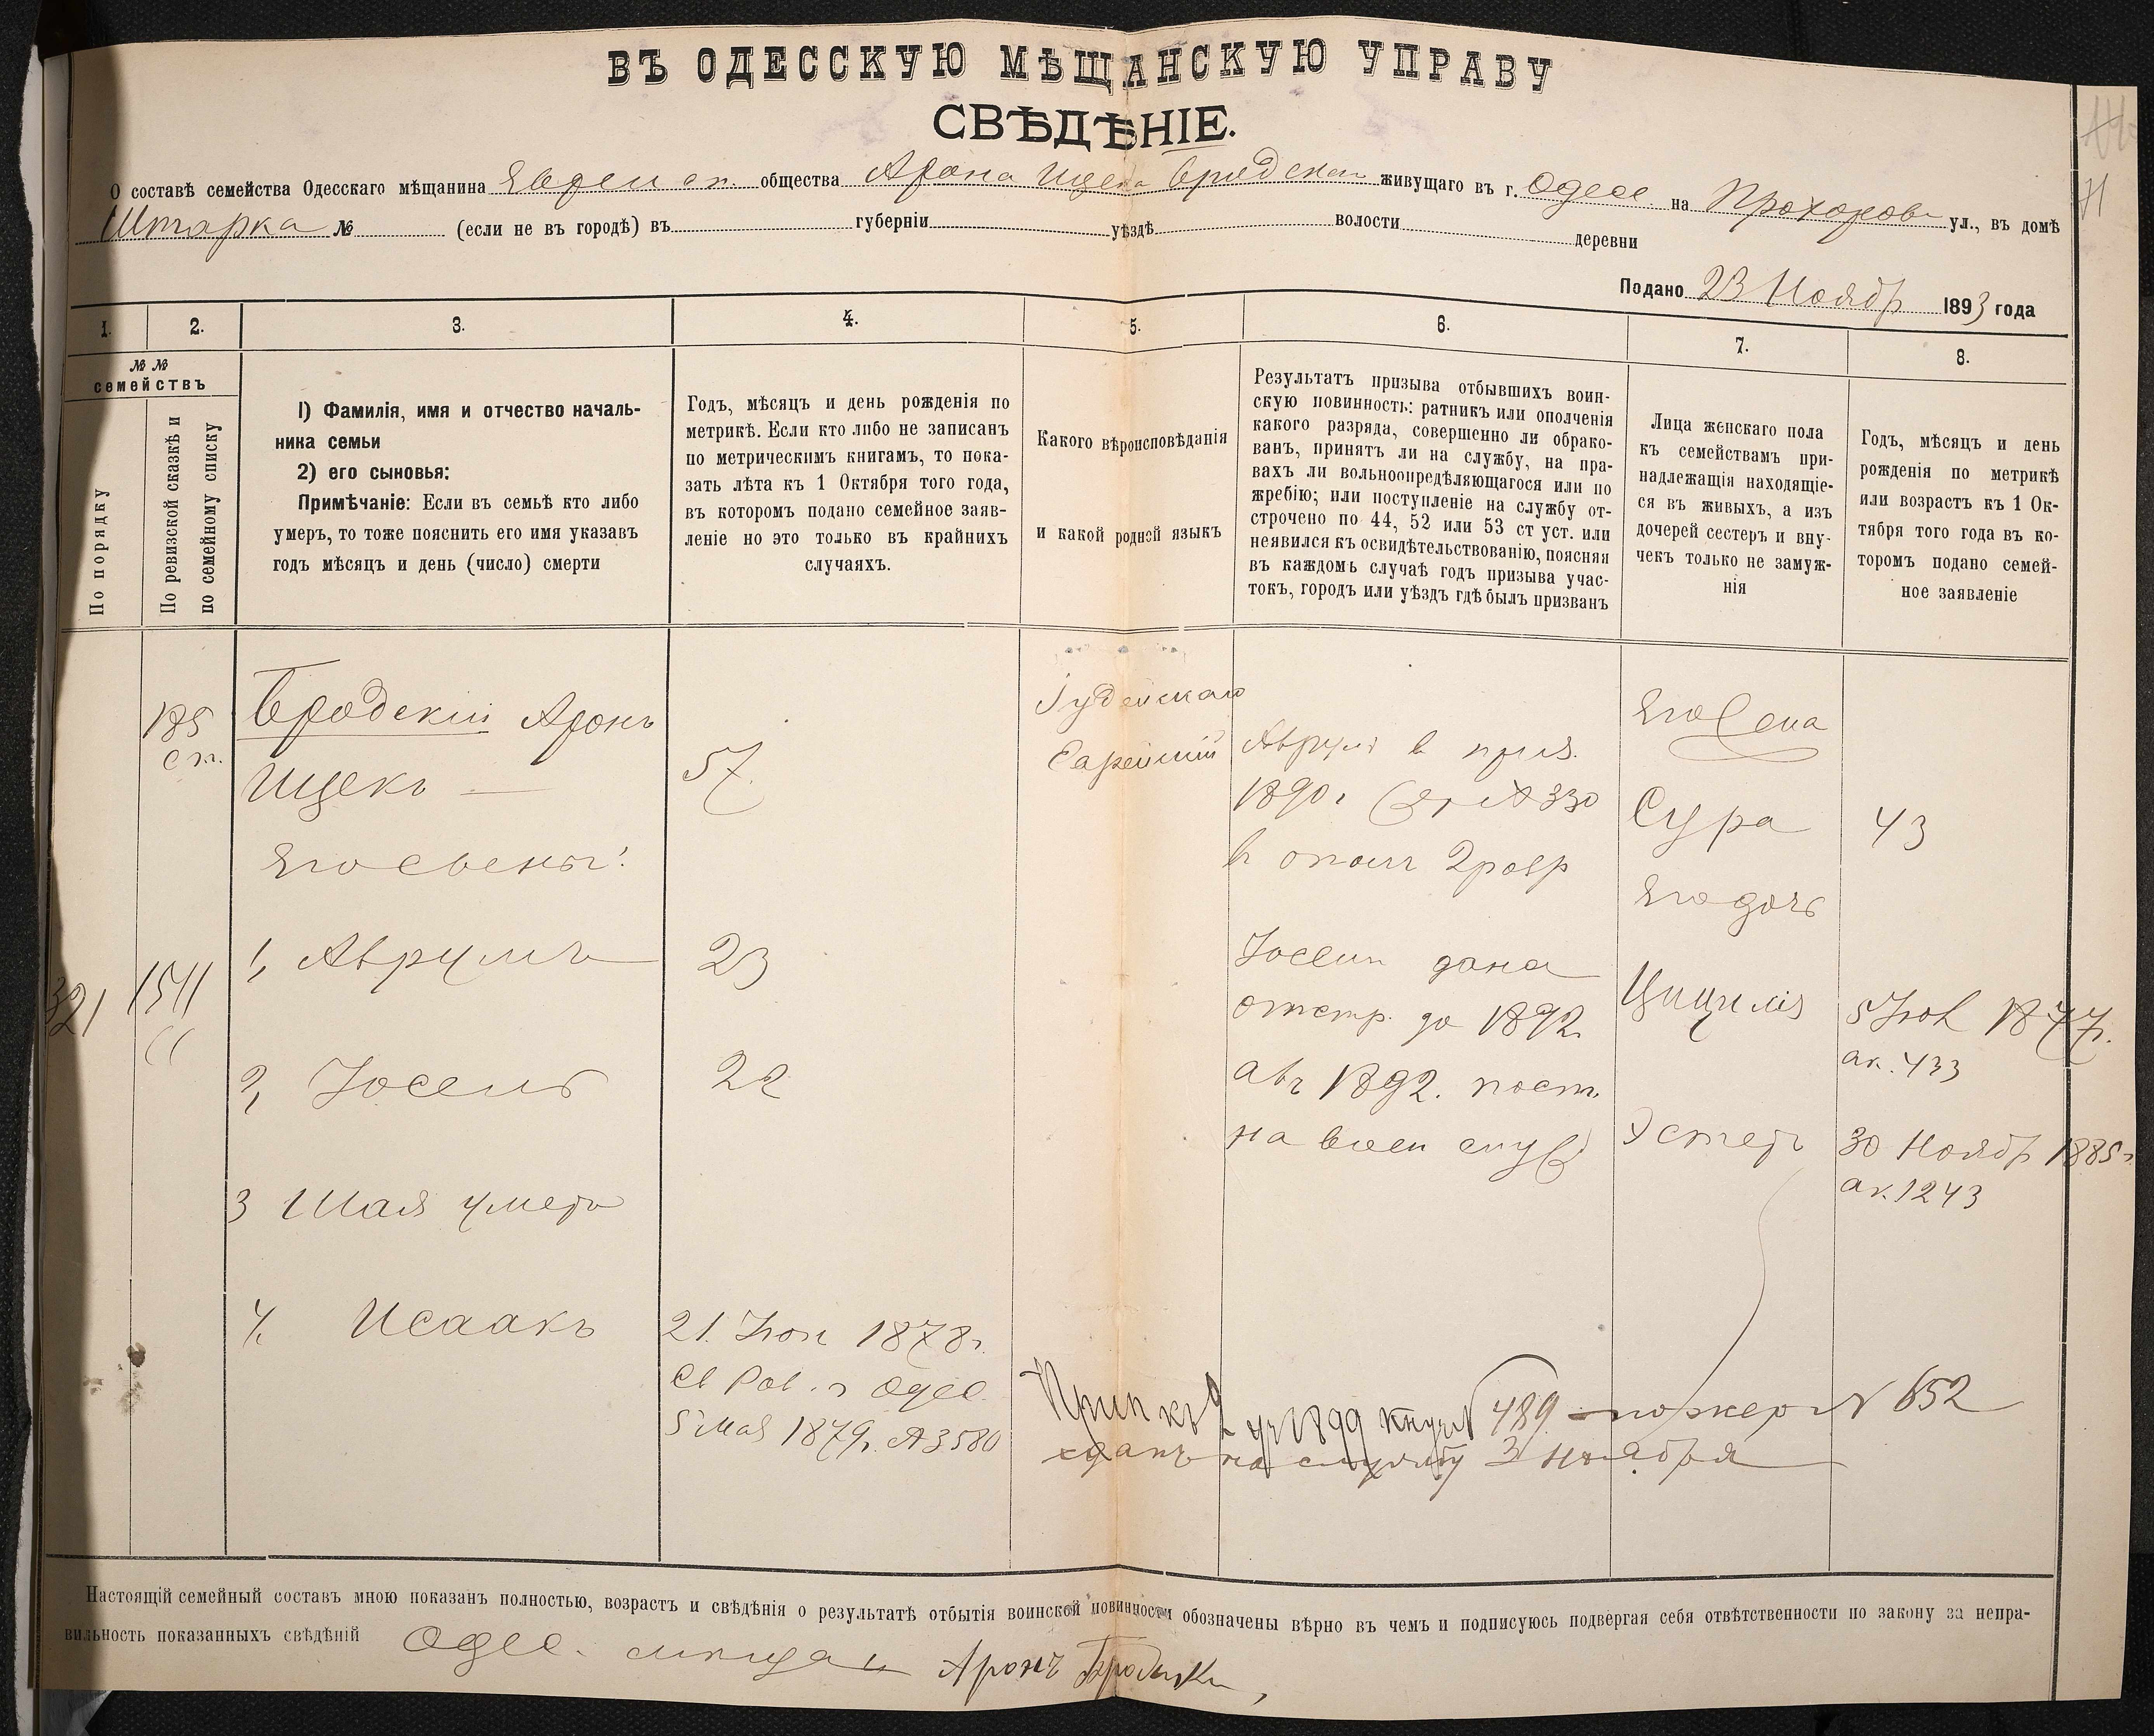 ВЪ ОДЕССКУЮ МѢЩАНСКУЮ УПРАВУ
СВѢДѢНІЕ.
О составѣ семейства Одесскаго мѣщанина Еврейск ст. общества Арона Ицека Бродскаго живущаго въ г. Одесс на Прохоров ул., въ домѣ
Штарка № (если не въ городѣ) въ губерніи уѣздѣ волости деревни
Подано 23 Ноябр 1893 года
1.
2.
3.
4.
5.
6.
7.
8.
№ №
семействъ
По порядку
По ревизской сказкѣ и
по семейному списку
1) Фамилія, имя и отчество началь-
ника семьи
2) его сыновья:
Примѣчаніе: Если въ семьѣ кто либо
умеръ, то тоже пояснить его имя указавъ
годъ мѣсяцъ и день (число) смерти
Годъ, мѣсяцъ и день рожденія по
метрикѣ. Если кто либо не записанъ
по метрическимъ книгамъ, то пока-
зать лѣта къ 1 Октября того года,
въ которомъ подано семейное заяв-
леніе но это только въ крайнихъ
случаяхъ.
Какого вѣроисповѣданія
и какой родной языкъ
Результатъ призыва отбывшихъ воин-
скую повинность: ратникъ или ополченія
какого разряда, совершенно ли обрако-
ванъ, принятъ ли на службу, на пра-
вахъ ли вольноопредѣляющагося или по
жребію; или поступленіе на службу от-
строчено по 44, 52 или 53 ст уст. или
неявился къ освидѣтельствованію, поясняя
въ каждомъ случаѣ годъ призыва учас-
токъ, городъ или уѣздъ гдѣ былъ призванъ
Лица женскаго пола
къ семействамъ при-
надлежащія находящіе-
ся въ живыхъ, а изъ
дочерей сестеръ и вну-
чекъ только не замуж-
нія
Годъ, мѣсяцъ и день
рожденія по метрикѣ
или возрастъ къ 1 Ок-
тября того года въ ко-
торомъ подано семей-
ное заявленіе
185
ст.
Бродскій Аронъ
Ицекъ
57
Іудейскаго
Еврейскій
Аврумъ в приз.
1890г № 330
в опол 2 разр
Его жена
Сура
43
Его сыны:
Его дочь
321
1511
1, Аврумъ
23
Іосель дана
отстр. до 1892
а въ 1892. пост.
на воен служ
Цицилія
5 Іюл 1877г.
ак. 433
2, Іосель
22
Эстеръ
30 Ноябр 1885г
ак. 1243
3 Шая умеръ
4. Исаакъ
21. Іюн 1878г.
Св Рав. г Одес.
5 Мая 1879г. № 3580
Прип къ 2 уч 1899 489 жереб № 652
сданъ на службу 3 Ноября
Настоящій семейный составъ мною показанъ полностью, возрастъ и свѣдѣнія о результатѣ отбытія воинской повинности обозначены вѣрно въ чемъ и подписуюсь подвергая себя отвѣтственности по закону за непра-
вильность показанныхъ свѣдѣній Одес. мѣщан Аронъ Бродски